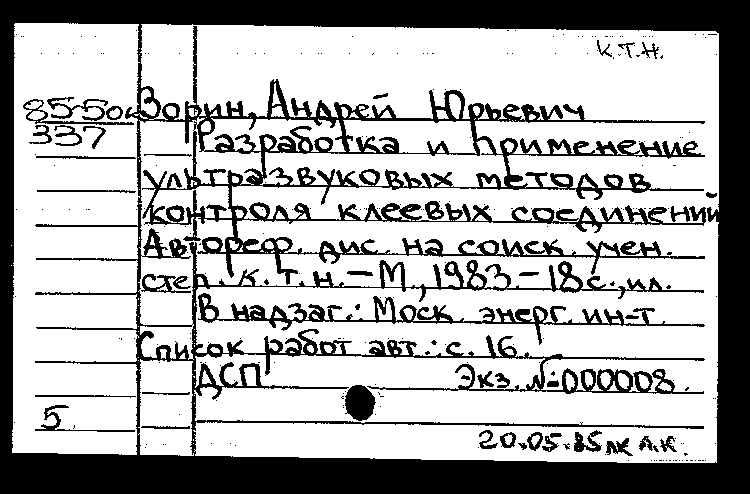 К.Т.Н.
85-50к Зорин, Андрей Юрьевич
337 Разработка и применение
ультразвуковых методов
контроля клеевых соединений
Автореф. дис. на соиск. учен.
степ. к.т.н. - М., 1983. - 18 с., ил.
В надзаг.: Моск. энерг. ин-т.
Список работ авт.: с. 16.
ДСП Экз. №000008.
5
20.05.85 лк А.К.